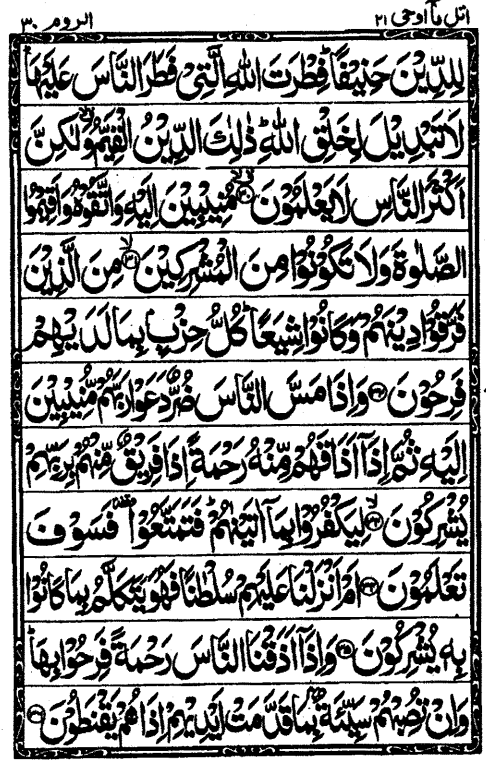 اتل ما اوحی ۲۱
الروم ۳۰
لِلدِّيْنِ حَنِيْفًا ؕ فِطْرَتَ اللّٰهِ الَّتِيْ فَطَرَ النَّاسَ عَلَيْهَا ؕ
لَا تَبْدِيْلَ لِخَلْقِ اللّٰهِ ؕ ذٰلِكَ الدِّيْنُ الْقَيِّمُ ۙ وَلٰكِنَّ
اَكْثَرَ النَّاسِ لَا يَعْلَمُوْنَ ۙ۳۰ مُنِيْبِيْنَ اِلَيْهِ وَاتَّقُوْهُ وَاَقِيْمُوا
الصَّلٰوةَ وَلَا تَكُوْنُوْا مِنَ الْمُشْرِكِيْنَ ۙ۳۱ مِنَ الَّذِيْنَ
فَرَّقُوْا دِيْنَهُمْ وَكَانُوْا شِيَعًا ؕ كُلُّ حِزْبٍۭ بِمَا لَدَيْهِمْ
فَرِحُوْنَ ۳۲ وَاِذَا مَسَّ النَّاسَ ضُرٌّ دَعَوْا رَبَّهُمْ مُّنِيْبِيْنَ
اِلَيْهِ ثُمَّ اِذَاۤ اَذَاقَهُمْ مِّنْهُ رَحْمَةً اِذَا فَرِيْقٌ مِّنْهُمْ بِرَبِّهِمْ
يُشْرِكُوْنَ ۙ۳۳ لِيَكْفُرُوْا بِمَاۤ اٰتَيْنٰهُمْ ؕ فَتَمَتَّعُوْا ۥ فَسَوْفَ
تَعْلَمُوْنَ ۳۴ اَمْ اَنْزَلْنَا عَلَيْهِمْ سُلْطٰنًا فَهُوَ يَتَكَلَّمُ بِمَا كَانُوْا
بِهٖ يُشْرِكُوْنَ ۳۵ وَاِذَاۤ اَذَقْنَا النَّاسَ رَحْمَةً فَرِحُوْا بِهَا ؕ
وَاِنْ تُصِبْهُمْ سَيِّئَةٌۢ بِمَا قَدَّمَتْ اَيْدِيْهِمْ اِذَا هُمْ يَقْنَطُوْنَ ۳۶